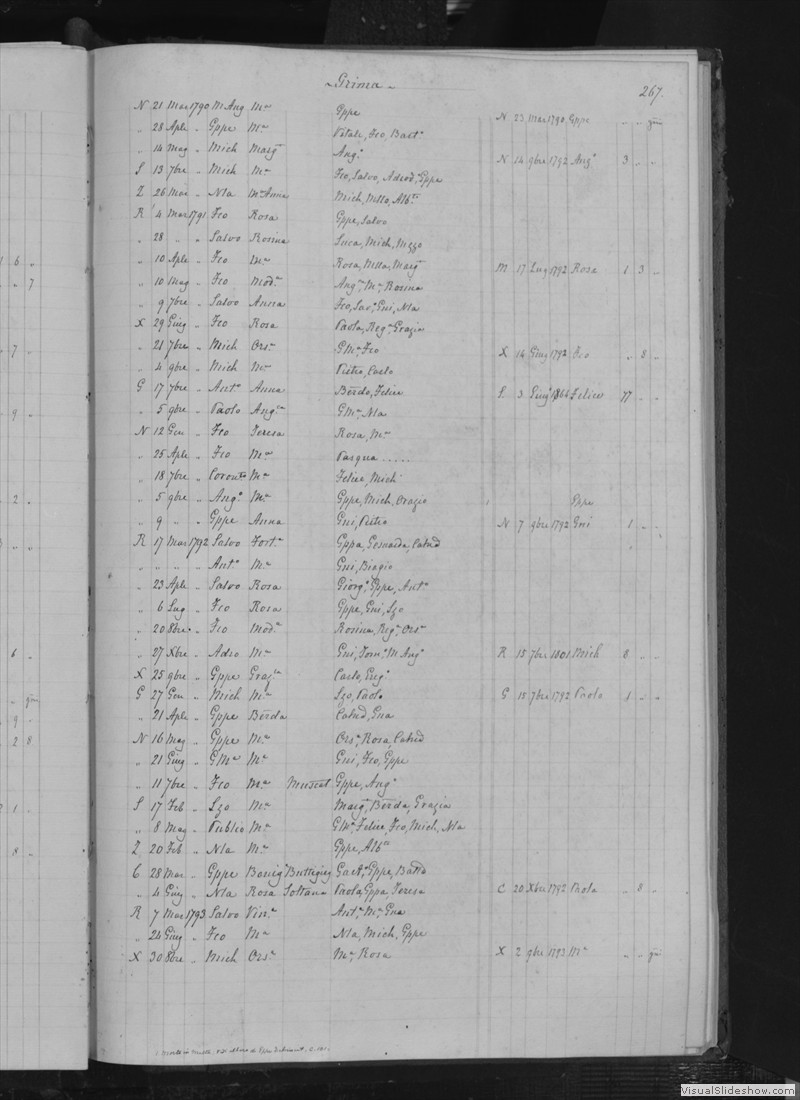 Grima
267
N 21 Mar 1790 M Ang Mª Gppe N 23 Mar 1790 Gppe " " gni
" 28 Aple " Gppe Mª Vitale, Fco, Bartº
" 14 Mag " Mich Marg Angº N 14 9bre 1792 Angº 3 " "
S 13 7bre " Mich Mª Fco, Salvo, Gppe
Z 26 Mar " Nla Mª Anna Mich, Mllo, Albª
R 4 Mar 1791 Fco Rosa Gppe, Salvo
" 28 " " Salvo Rosina Luca, Mich, Nzzo
" 10 Aple " Fco Mª Rosa, Mlla, Marg M 17 Lug 1792 Rosa 1 3 "
" 10 Mag " Fco Modª Angª, Mª, Rosina
" 9 7bre " Salvo Anna Fco, Savº, Gni, Nla
X 29 Giug " Fco Rosa Paola, Regª, Grazia
" 21 7bre " Mich Orsª GMª, Fco X 14 Giug 1792 Fco " 8 "
" 4 9bre " Mich Mª Pietro, Carlo
G 17 7bre " Antº Anna Berdo, Felice S 3 Giugº 1864 Felice 77 " "
" 5 9bre " Paolo Angª GMª, Nla
N 12 Gen " Fco Teresa Rosa, Mª
" 25 Aple " Fco Mª Pasqua .....
" 18 7bre " Mª Felice, Mich
" 5 9bre " Angº Mª Gppe, Mich, Orazio Gppe
" 9 " " Gppe Anna Gni, Pietro N 7 9bre 1792 Gni 1 " "
R 17 Mar 1792 Salvo Fortª Gppa, Catnd
" " " " Antº Mª Gni, Biagio
" 23 Aple " Salvo Rosa Giorgº, Gppe, Antº
" 6 Lug " Fco Rosa Gppe, Gni, Lzo
" 20 8bre " Fco Modª Rosina, Regª, Orsª
" 27 Xbre " Adeo Mª Gni, Domº, M Angº R 15 7bre 1801 Mich 8 " "
X 25 9bre " Gppe Grazª Carlo, Eugº
G 27 Gen " Mich Mª Lzo, Paolo G 15 7bre 1792 Paolo 1 " "
" 21 Aple " Gppe Berda Catnd, Gna
N 16 Mag " Gppe Mª Orsª, Rosa, Catnd
" 21 Giug " GMª Mª Gni, Fco, Gppe
" 11 7bre " Fco Mª Muscat Gppe, Angº
S 17 Feb " Lzo Mª Marg, Berda, Grazia
" 8 Mag " Publio Mª GMª, Felice, Fco, Mich, Nla
Z 20 Feb " Nla Mª Gppe, Albª
C 28 Mar " Gppe Benigª Buttigieg Gaetº, Gppe, Batta
" 4 Giug " Nla Rosa Soltana Paola, Gppa, Teresa C 20 Xbre 1792 Paola " 8 "
R 7 Mar 1793 Salvo Vinª Antª, Mª, Gna
" 24 Giug " Fco Mª Nla, Mich, Gppe
X 30 8bre " Mich Orsª Mª, Rosa X 2 9bre 1793 Mª " " gni
VisualSlideshow.com